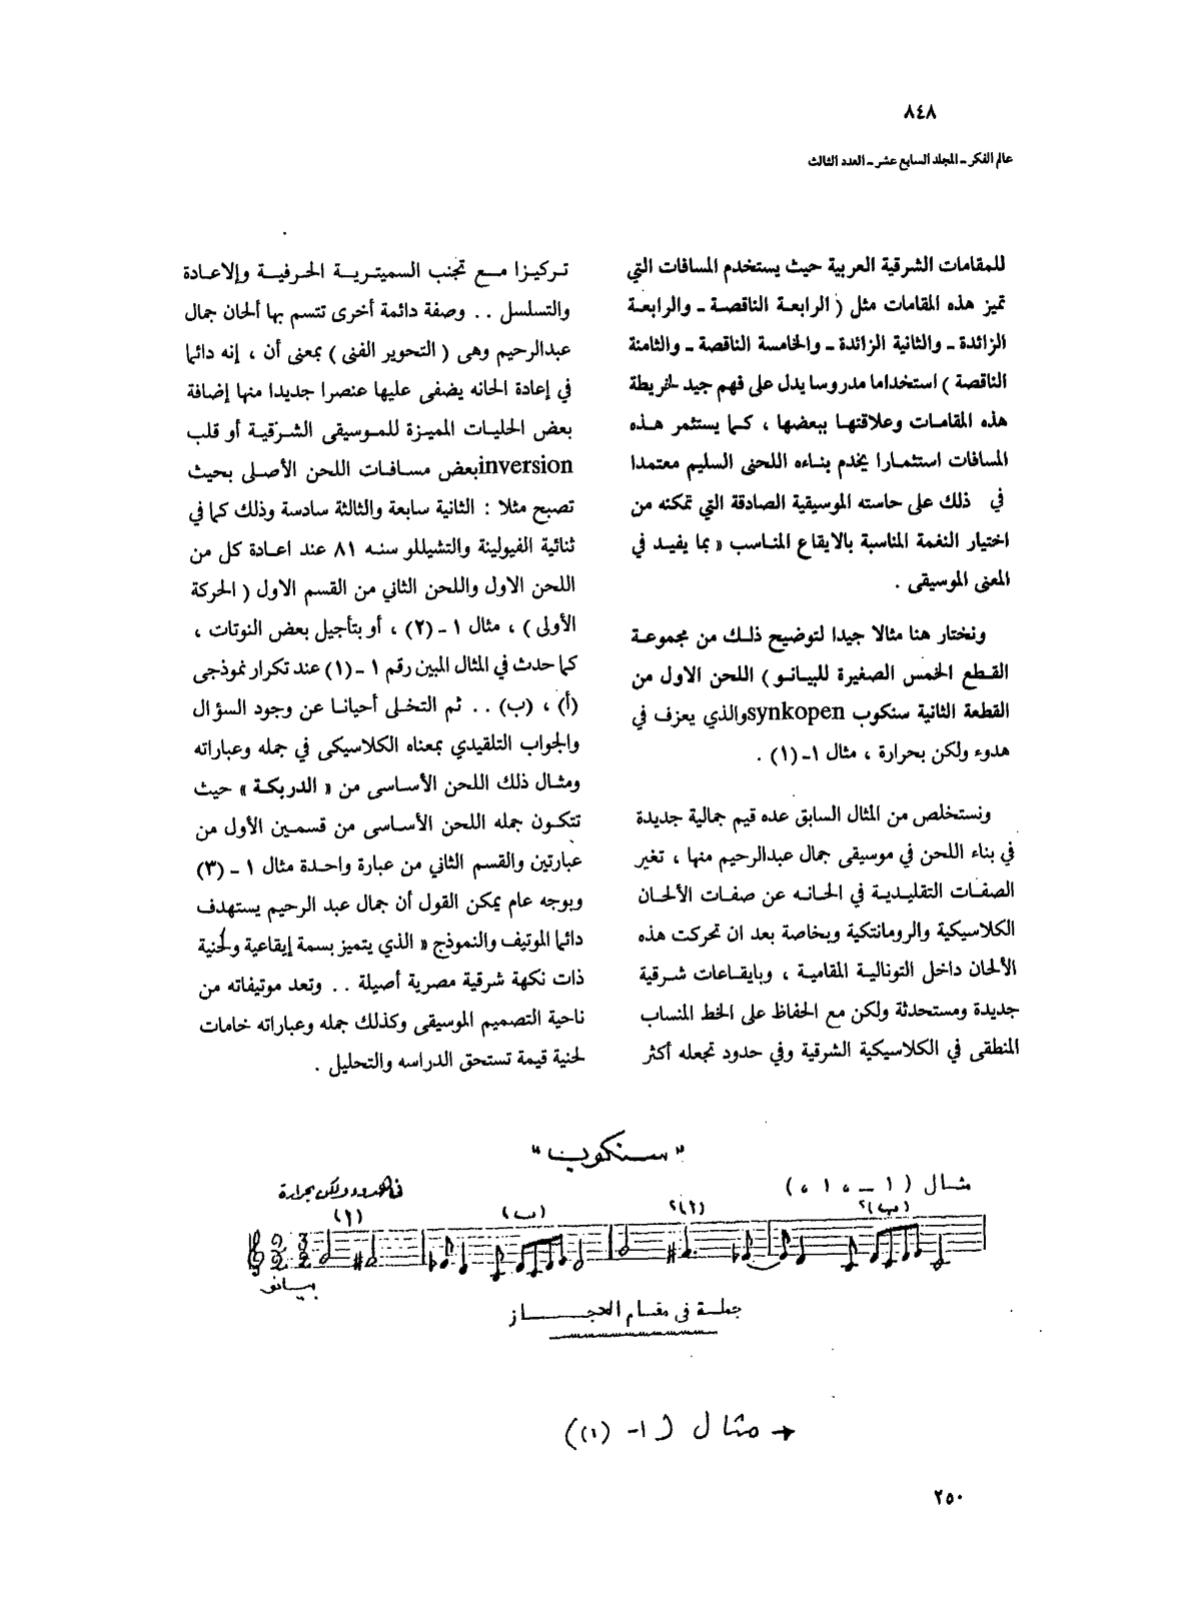 ٨٤٨
عالم الفكر ـ المجلد السابع عشر ـ العدد الثالث
للمقامات الشرقية العربية حيث يستخدم المسافات التي
تميز هذه المقامات مثل ( الرابعة الناقصة ـ والرابعة
الزائدة ـ والثانية الزائدة ـ والخامسة الناقصة ـ والثامنة
الناقصة ) استخداما مدروسا يدل على فهم جيد لخريطة
هذه المقامات وعلاقتها ببعضها ، كما يستثمر هذه
المسافات استثمارا يخدم بناءه اللحنى السليم معتمدا
في ذلك على حاسته الموسيقية الصادقة التي تمكنه من
اختيار النغمة المناسبة بالايقاع المناسب « بما يفيد في
المعنى الموسيقى .
ونختار هنا مثالا جيدا لتوضيح ذلك من مجموعة
القطع الخمس الصغيرة للبيانو ) اللحن الاول من
القطعة الثانية سنكوب synkopen والذي يعزف في
هدوء ولكن بحرارة ، مثال ١ـ (١) .
ونستخلص من المثال السابق عده قيم جمالية جديدة
في بناء اللحن في موسيقى جمال عبدالرحيم منها ، تغير
الصفات التقليدية في الحانه عن صفات الألحان
الكلاسيكية والرومانتكية وبخاصة بعد ان تحركت هذه
الألحان داخل التونالية المقامية ، وبايقاعات شرقية
جديدة ومستحدثة ولكن مع الحفاظ على الخط المنساب
المنطقى في الكلاسيكية الشرقية وفي حدود تجعله أكثر
تركيزا مع تجنب السميترية الحرفية وإلاعادة
والتسلسل . . وصفة دائمة أخرى تتسم بها ألحان جمال
عبدالرحيم وهى ( التحوير الفنى ) بمعنى أن ، إنه دائما
في إعادة الحانه يضفى عليها عنصرا جديدا منها إضافة
بعض الحليات المميزة للموسيقى الشرقية أو قلب
inversion بعض مسافات اللحن الأصلى بحيث
تصبح مثلا : الثانية سابعة والثالثة سادسة وذلك كما في
ثنائية الفيولينة والتشيللو سنه ٨١ عند اعادة كل من
اللحن الاول واللحن الثاني من القسم الاول ( الحركة
الأولى ) ، مثال ١ ـ (٢) ، أو بتأجيل بعض النوتات ،
كما حدث في المثال المبين رقم ١ ـ (١) عند تكرار نموذجى
(أ) ، (ب) . . ثم التخلى أحيانا عن وجود السؤال
والجواب التلقيدي بمعناه الكلاسيكى في جمله وعباراته
ومثال ذلك اللحن الأساسى من « الدربكة » حيث
تتكون جمله اللحن الأساسى من قسمين الأول من
عبارتين والقسم الثاني من عبارة واحدة مثال ١ ـ (٣)
وبوجه عام يمكن القول أن جمال عبد الرحيم يستهدف
دائما الموتيف والنموذج « الذي يتميز بسمة إيقاعية ولحنية
ذات نكهة شرقية مصرية أصيلة . . وتعد موتيفاته من
ناحية التصميم الموسيقى وكذلك جمله وعباراته خامات
لحنية قيمة تستحق الدراسه والتحليل .
"سنكوب"
مثال ( ١ ـ ١ )
في هدوء ولكن بحرارة
(أ) (ب) (أ)٢ (ب)٢
2 3 3
2 2 2
بيانو
جملة فى مقام الحجاز
مثال (١- (١))
٢٥٠